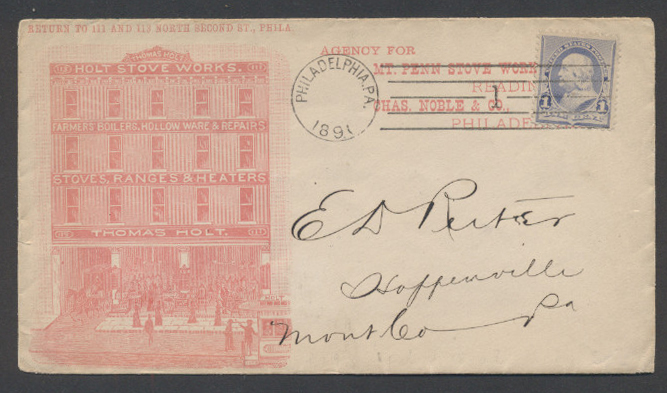 RETURN TO 111 AND 113 NORTH SECOND ST., PHILA
THOMAS HOLT
HOLT STOVE WORKS.
FARMERS' BOILERS, HOLLOW WARE & REPAIRS
STOVES, RANGES & HEATERS
THOMAS HOLT.
HOLT
AGENCY FOR
MT. PENN STOVE WORK
READIN
CHAS. NOBLE & CO.,
PHILADE
PHILADELPHIA, PA.
189
1
UNITED STATES POSTAGE
1 1
ONE CENT
E D Reiter
Hoppenville
Mont Co Pa